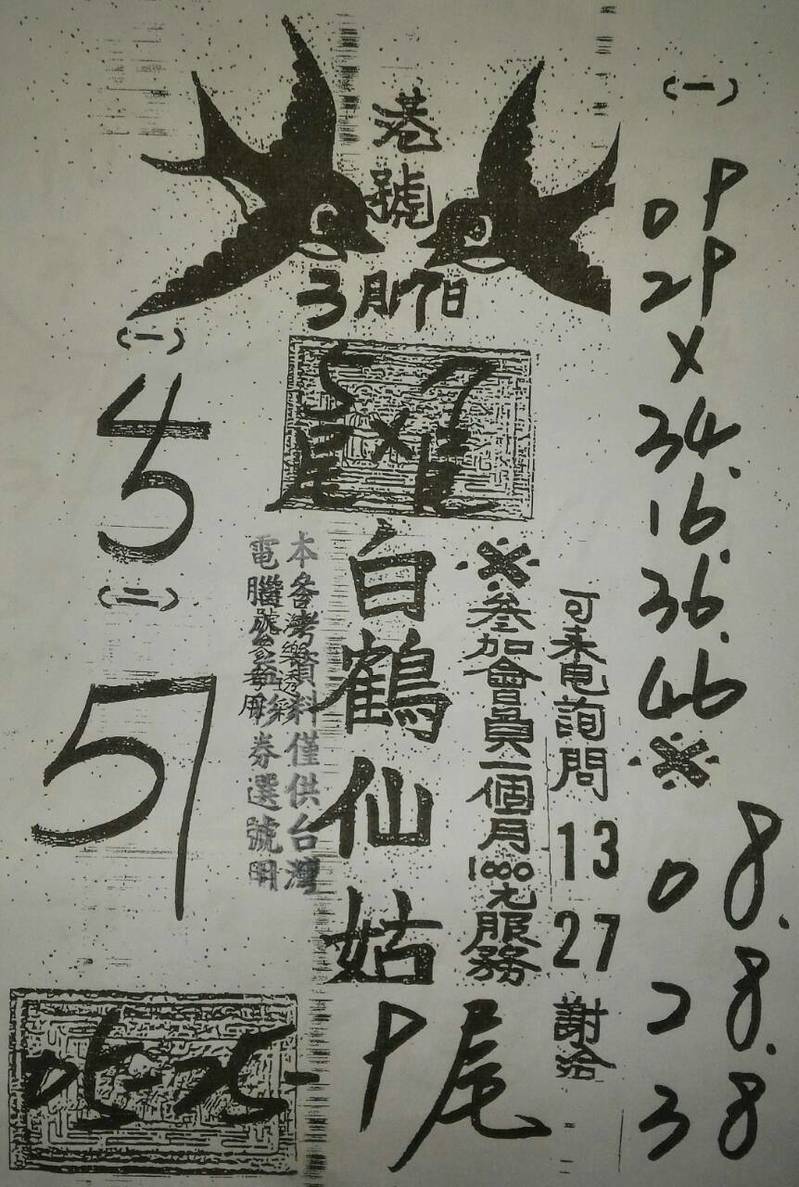 港號
3月17日
(一)
45
(二)
57
5尾×7尾
白鶴仙姑
9尾
05-25-
本各灣
料僅供台灣
電腦
券選號用
※參加會員一個月1000元服務
可來電詢問 13 27 謝洽
(一)
09
29
×
34.
16.
36.
46
※
08.
28.
38